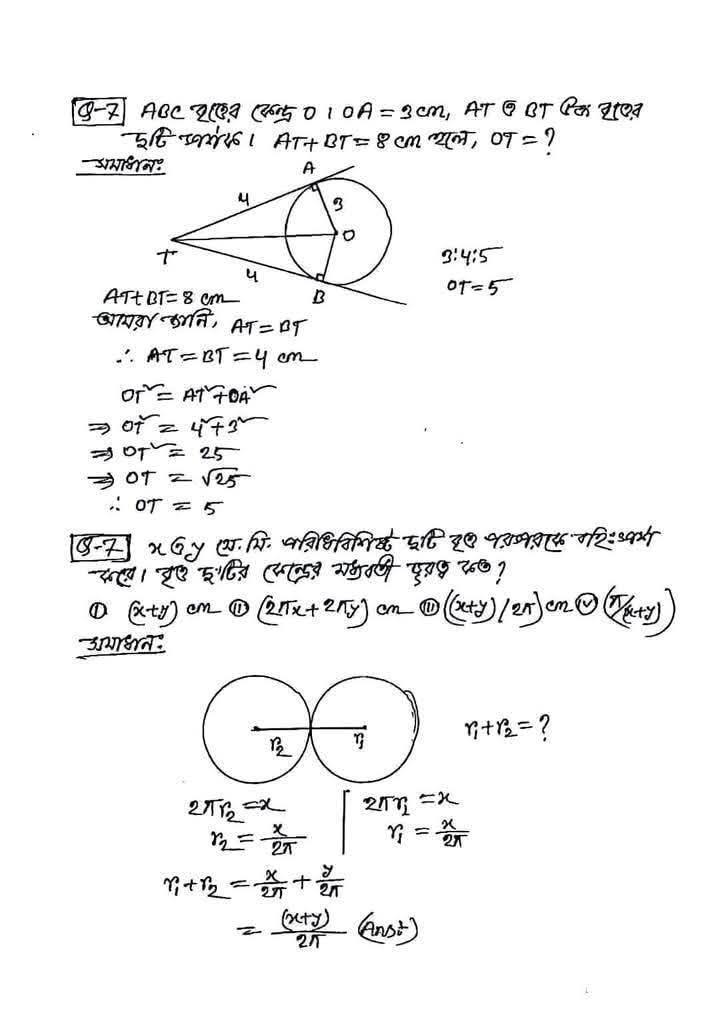 Q-7 ABC বৃত্তের কেন্দ্র O । OA = 3 cm, AT ও BT উক্ত বৃত্তের
দুটি স্পর্শক। AT + BT = 8 cm হলে, OT = ?
সমাধানঃ
A
4
3
O
T
4
B
3:4:5
OT = 5
AT + BT = 8 cm
আমরা জানি, AT = BT
∴ AT = BT = 4 cm
OT² = AT² + OA²
⇒ OT² = 4² + 3²
⇒ OT² = 25
⇒ OT = √25
∴ OT = 5
Q-7 x ও y সে.মি. পরিধিবিশিষ্ট দুটি বৃত্ত পরস্পরকে বহিঃস্পর্শ
করে। বৃত্ত দু'টির কেন্দ্রের মধ্যবর্তী দূরত্ব কত?
(i) (x+y) cm (ii) (2πx + 2πy) cm (iii) ((x+y)/2π) cm (iv) (π/(x+y))
সমাধানঃ
r₂ r₁
r₁ + r₂ = ?
2πr₂ = x | 2πr₁ = x
r₂ = x/2π | r₁ = x/2π
r₁ + r₂ = x/2π + y/2π
= (x+y)/2π (Ans:)